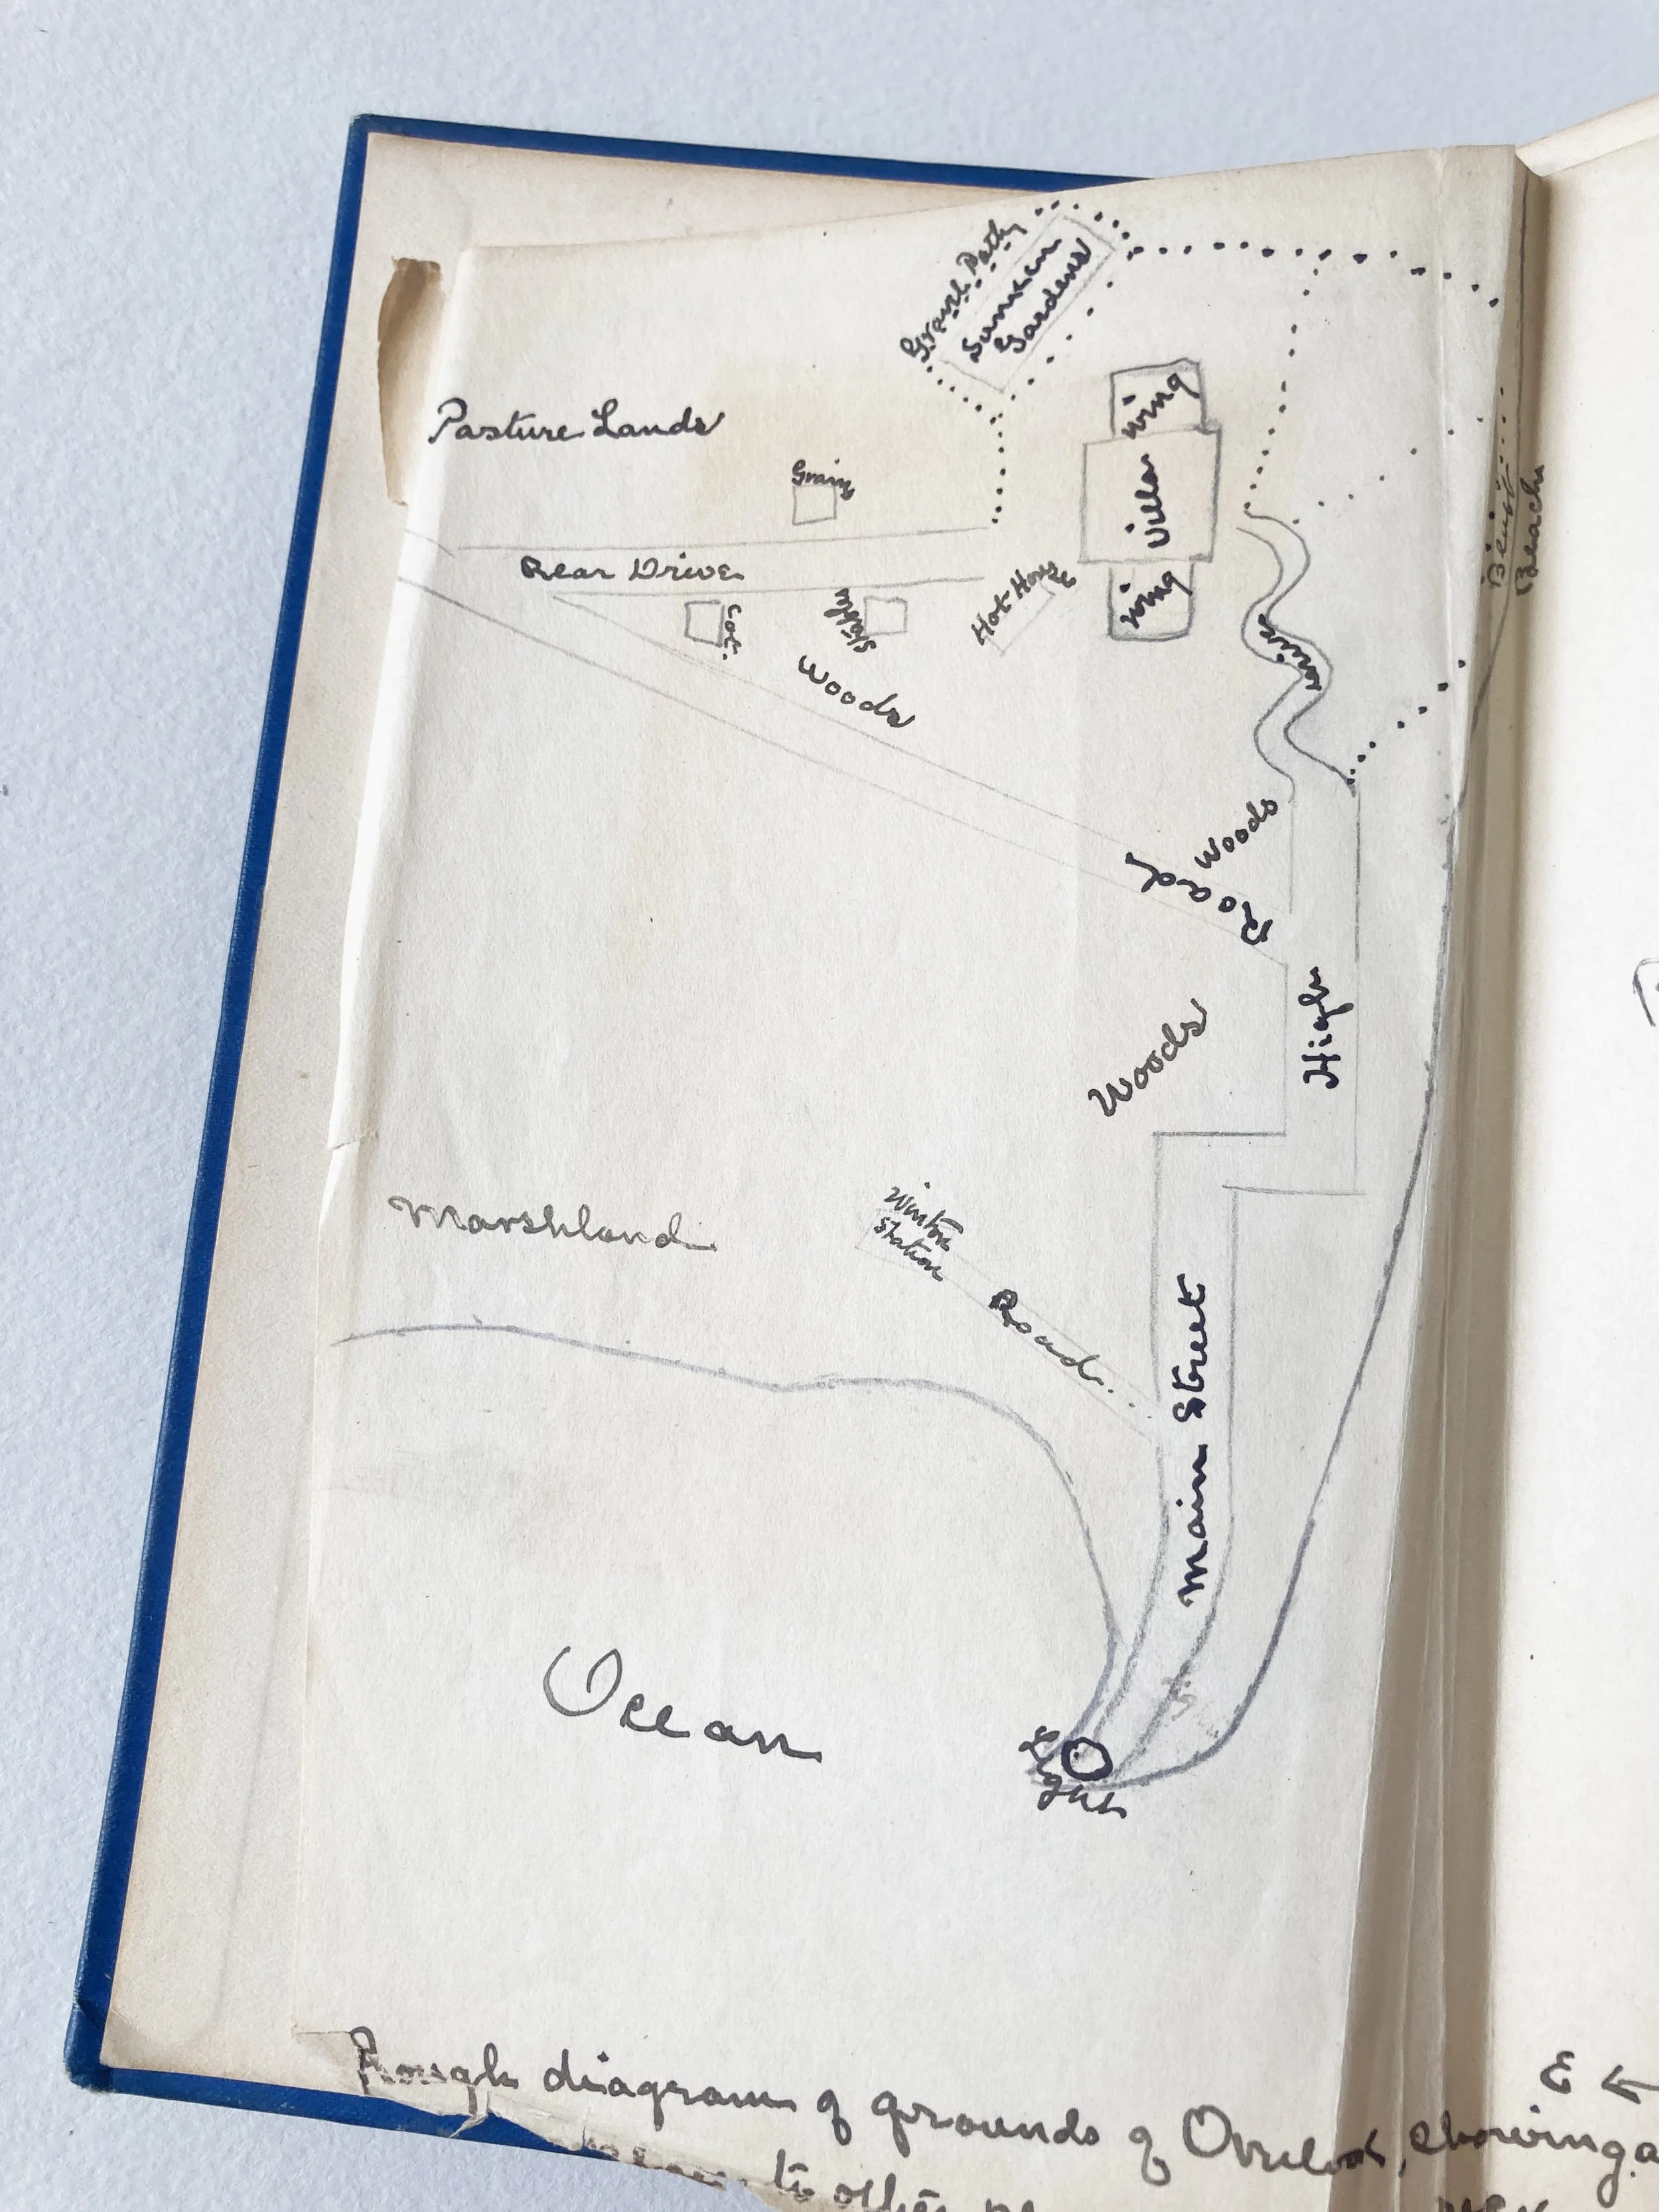 Gravel Path
Sunken
Gardens
Pasture Lands
Wing
Villa
Wing
Grain
Rear Drive
Hot House
Cot.
Stable
Woods
Beach
Woods
Road
High
Woods
Marshland
Winton
Station
Road
Main Street
Ocean
Light
E ←
Rough diagram of grounds of Overlook, showing
to other